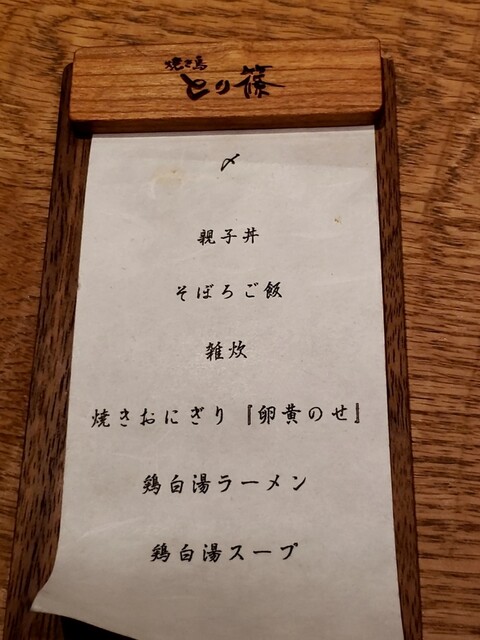 焼き鳥
とり篠
〆
親子丼
そぼろご飯
雑炊
焼きおにぎり『卵黄のせ』
鶏白湯ラーメン
鶏白湯スープ